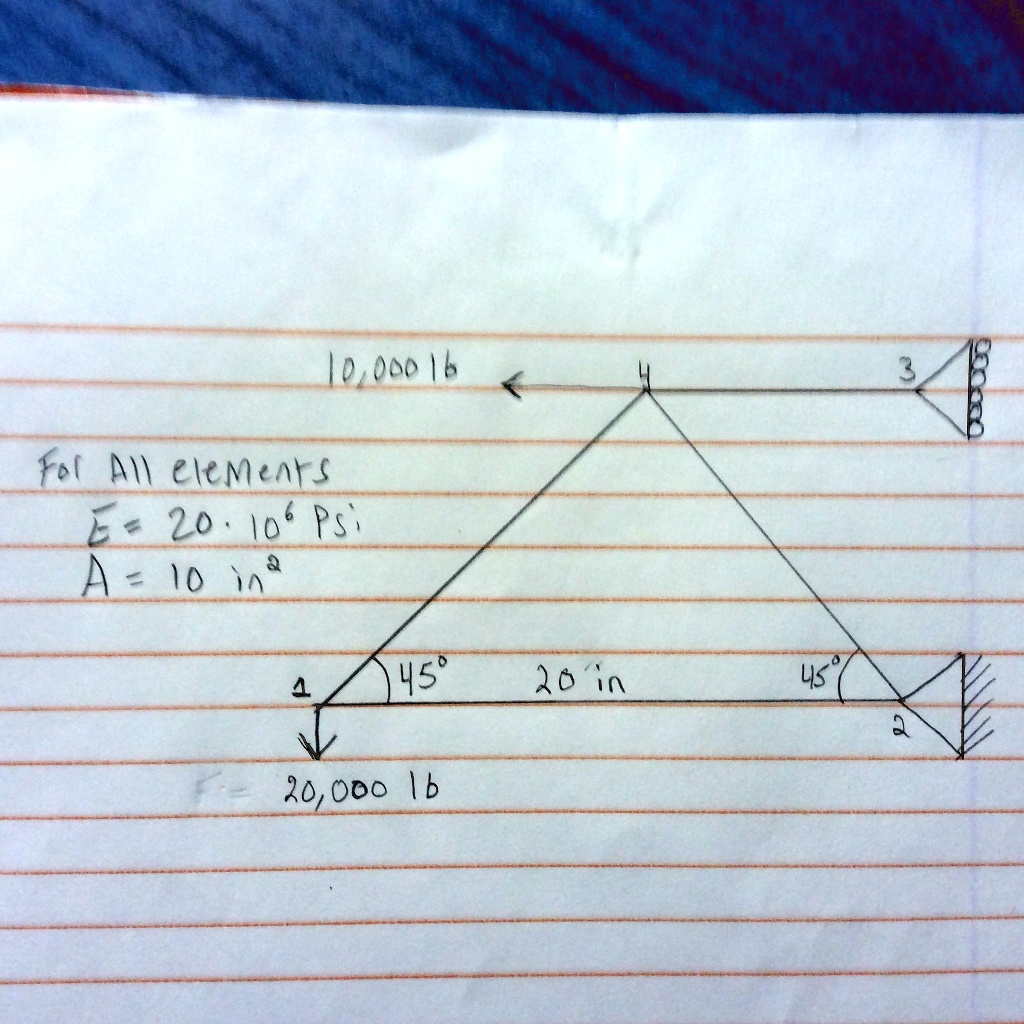 10,000 lb
4
3
For All elements
E = 20 · 10⁶ Psi
A = 10 in²
1
45°
20 in
45°
2
F =
20,000 lb